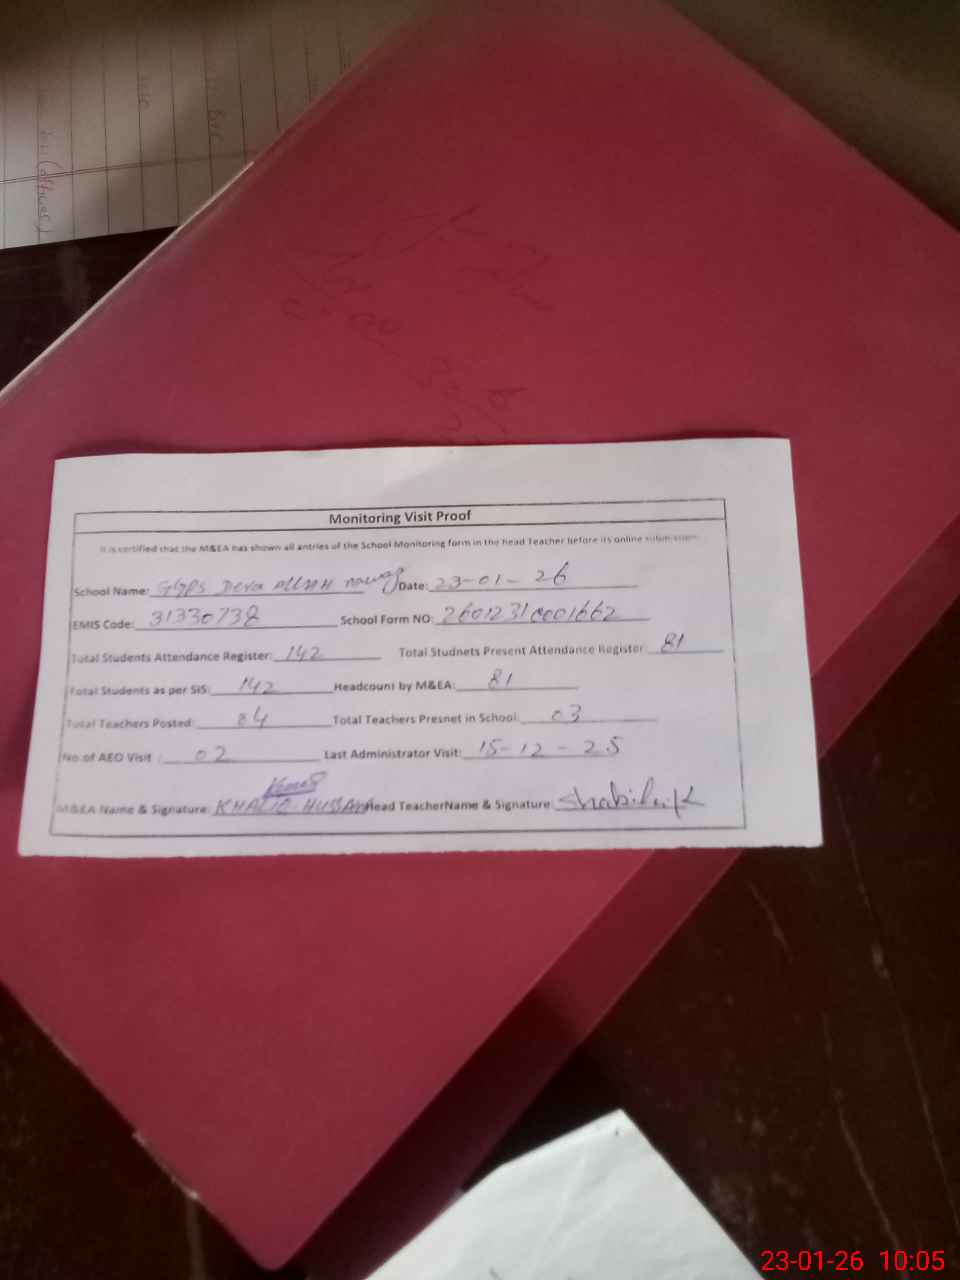 Monitoring Visit Proof
It is certified that the M&EA has shown all entries of the School Monitoring form in the head Teacher before its online submission
School Name: GGPS Dera Allah nawaz Date: 23-01-26
EMIS Code: 31330738 School Form NO: 26012310001662
Total Students Attendance Register: 142 Total Studnets Present Attendance Register 81
Total Students as per SIS: 142 Headcount by M&EA: 81
Total Teachers Posted: 04 Total Teachers Presnet in School: 03
No.of AEO Visit : 02 Last Administrator Visit: 15-12-25
M&EA Name & Signature: KHALIQ HUSSAIN Head TeacherName & Signature
23-01-26 10:05